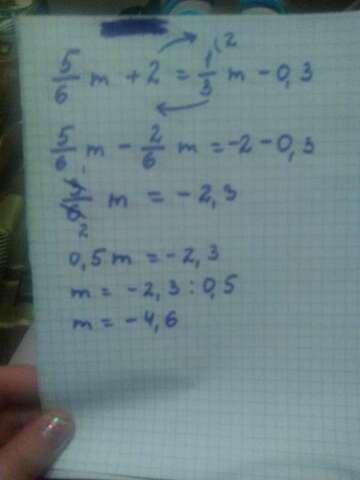 5/6 m + 2 = 1/3 m - 0,3
5/6 m - 2/6 m = -2 - 0,3
3/6 m = -2,3
0,5 m = -2,3
m = -2,3 : 0,5
m = -4,6